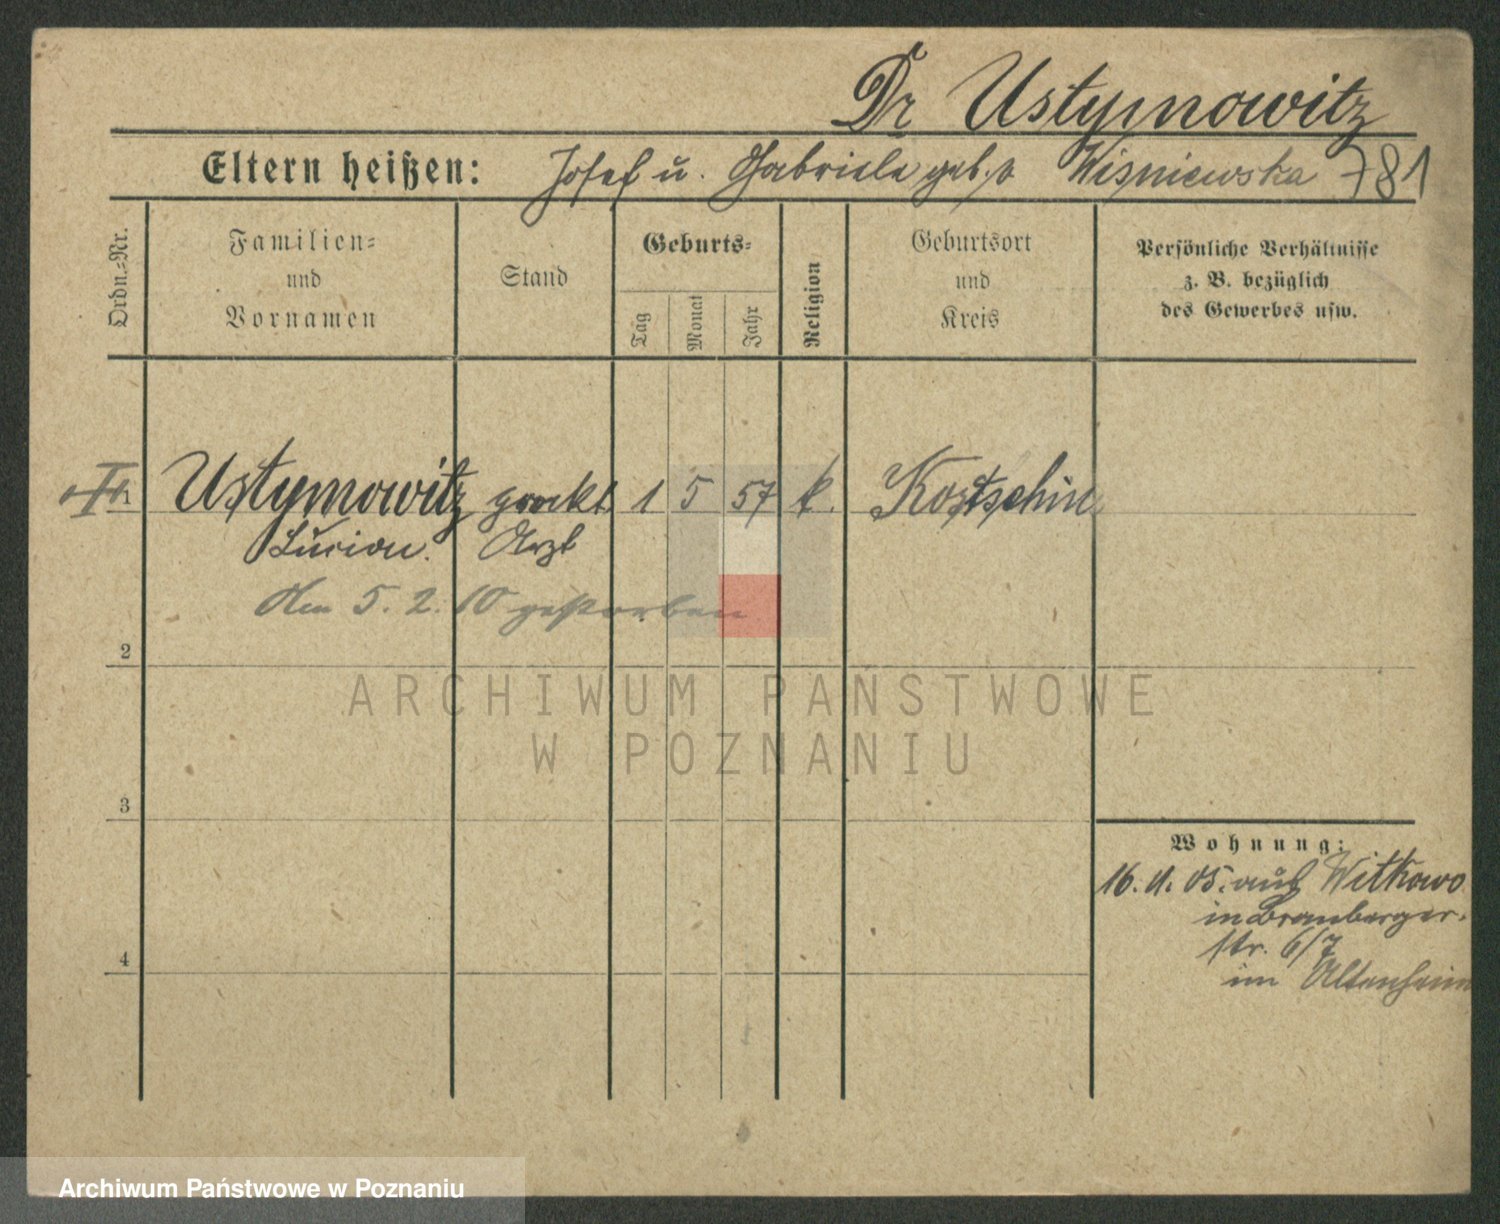 Dr Ustymowitz
Eltern heißen: Josef u. Gabriele geb. v Wisniewska 781
Ordn.=Nr.
Familien=
und
Vornamen
Stand
Geburts=
Tag
Monat
Jahr
Religion
Geburtsort
und
Kreis
Persönliche Verhältnisse
z. B. bezüglich
des Gewerbes usw.
1 Ustymowitz prakt 1 5 57 k. Kostschin
Lucian. Arzt
Am 5. 2. 10 gestorben
2
ARCHIWUM PAŃSTWOWE
W POZNANIU
3
Wohnung:
16. 11. 05. aus Witkowo
in Bromberger-
str. 6/7
im Altenheim
4
Archiwum Państwowe w Poznaniu